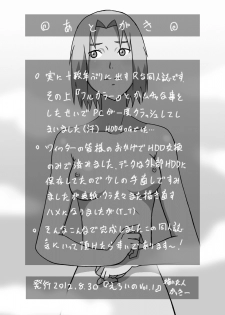 あとがき
実に十数年ぶりに出すR な同人誌です
その上『フルカラー』とかムチャな事を
したせいでPCが一度クラッシュして
しまいました(汗) HDDが
ツィッターの皆様のおかげでHDD交換
のみで済みました、データは外部HDDに
保存してたので少しの手直しですみ
ましたが表紙、カラ見えな 描き直す
ハメになりましたが(T_T)
そんなこんなで完成しました この同人誌
気にいって頂けたら幸いであります〜!
発行2012.8.30『えろいの Vol.1』